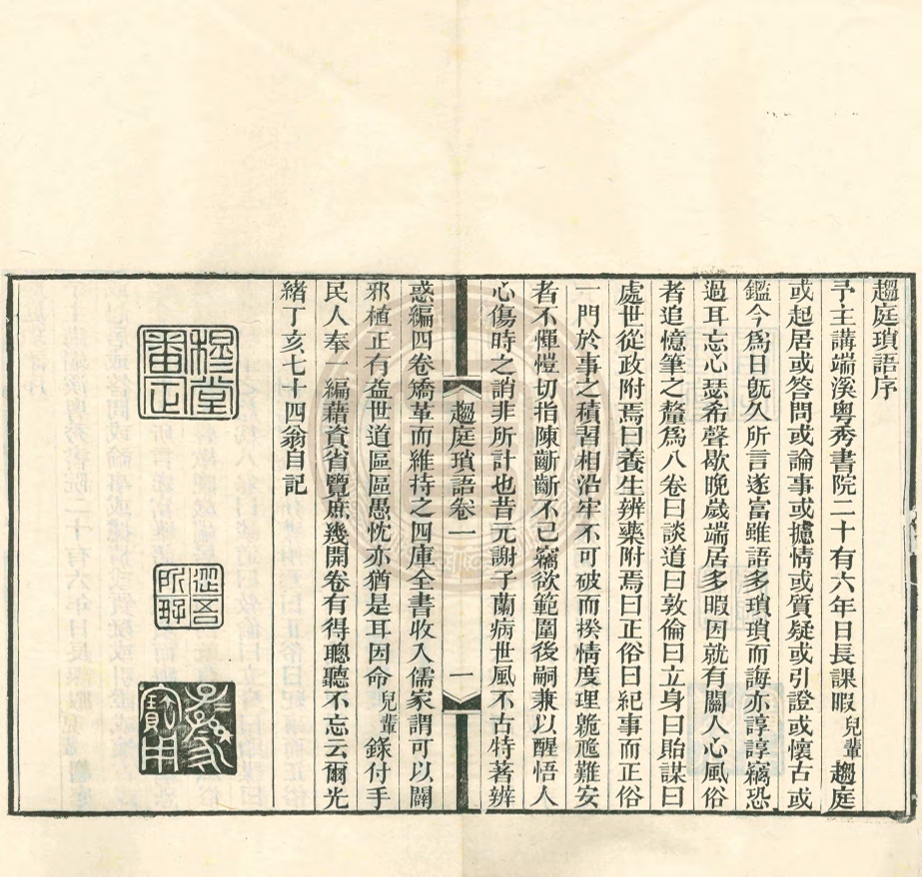 趨庭瑣語序
予主講端溪粵秀書院二十有六年日長課暇兒輩趨庭
或起居或答問或論事或攄情或質疑或引證或懷古或
鑑今爲日旣久所言遂富雖語多瑣瑣而誨亦諄諄竊恐
過耳忘心瑟希聲歇晚歲端居多暇因就有關人心風俗
者追憶筆之釐爲八卷曰談道曰敦倫曰立身曰貽謀曰
處世從政附焉曰養生辨藥附焉曰正俗曰紀事而正俗
一門於事之積習相沿牢不可破而揆情度理難安
者不憚愷切指陳斷斷不已竊欲範圍後嗣兼以醒悟人
心傷時之誚非所計也昔元謝子蘭病世風不古特著辨
趨庭瑣語卷一
一
惑編四卷矯革而維持之四庫全書收入儒家謂可以闢
邪植正有益世道區區愚忱亦猶是耳因命兒輩錄付手
民人奉一編藉資省覽庶幾開卷有得聰聽不忘云爾光
緒丁亥七十四翁自記
穆堂